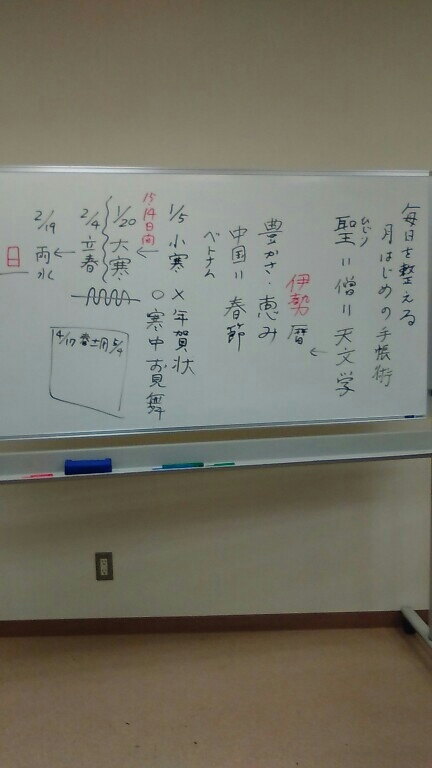 毎日を整える
月はじめの手帳術
ひじり
聖＝僧＝天文学
←
伊勢暦
豊かさ・恵み
中国＝春節
ベトナム
1/5 小寒 × 年賀状
○ 寒中お見舞
←
15
14日間
1/20 大寒
2/4 立春
←
2/19 雨水
日
4/17 春土用 5/4